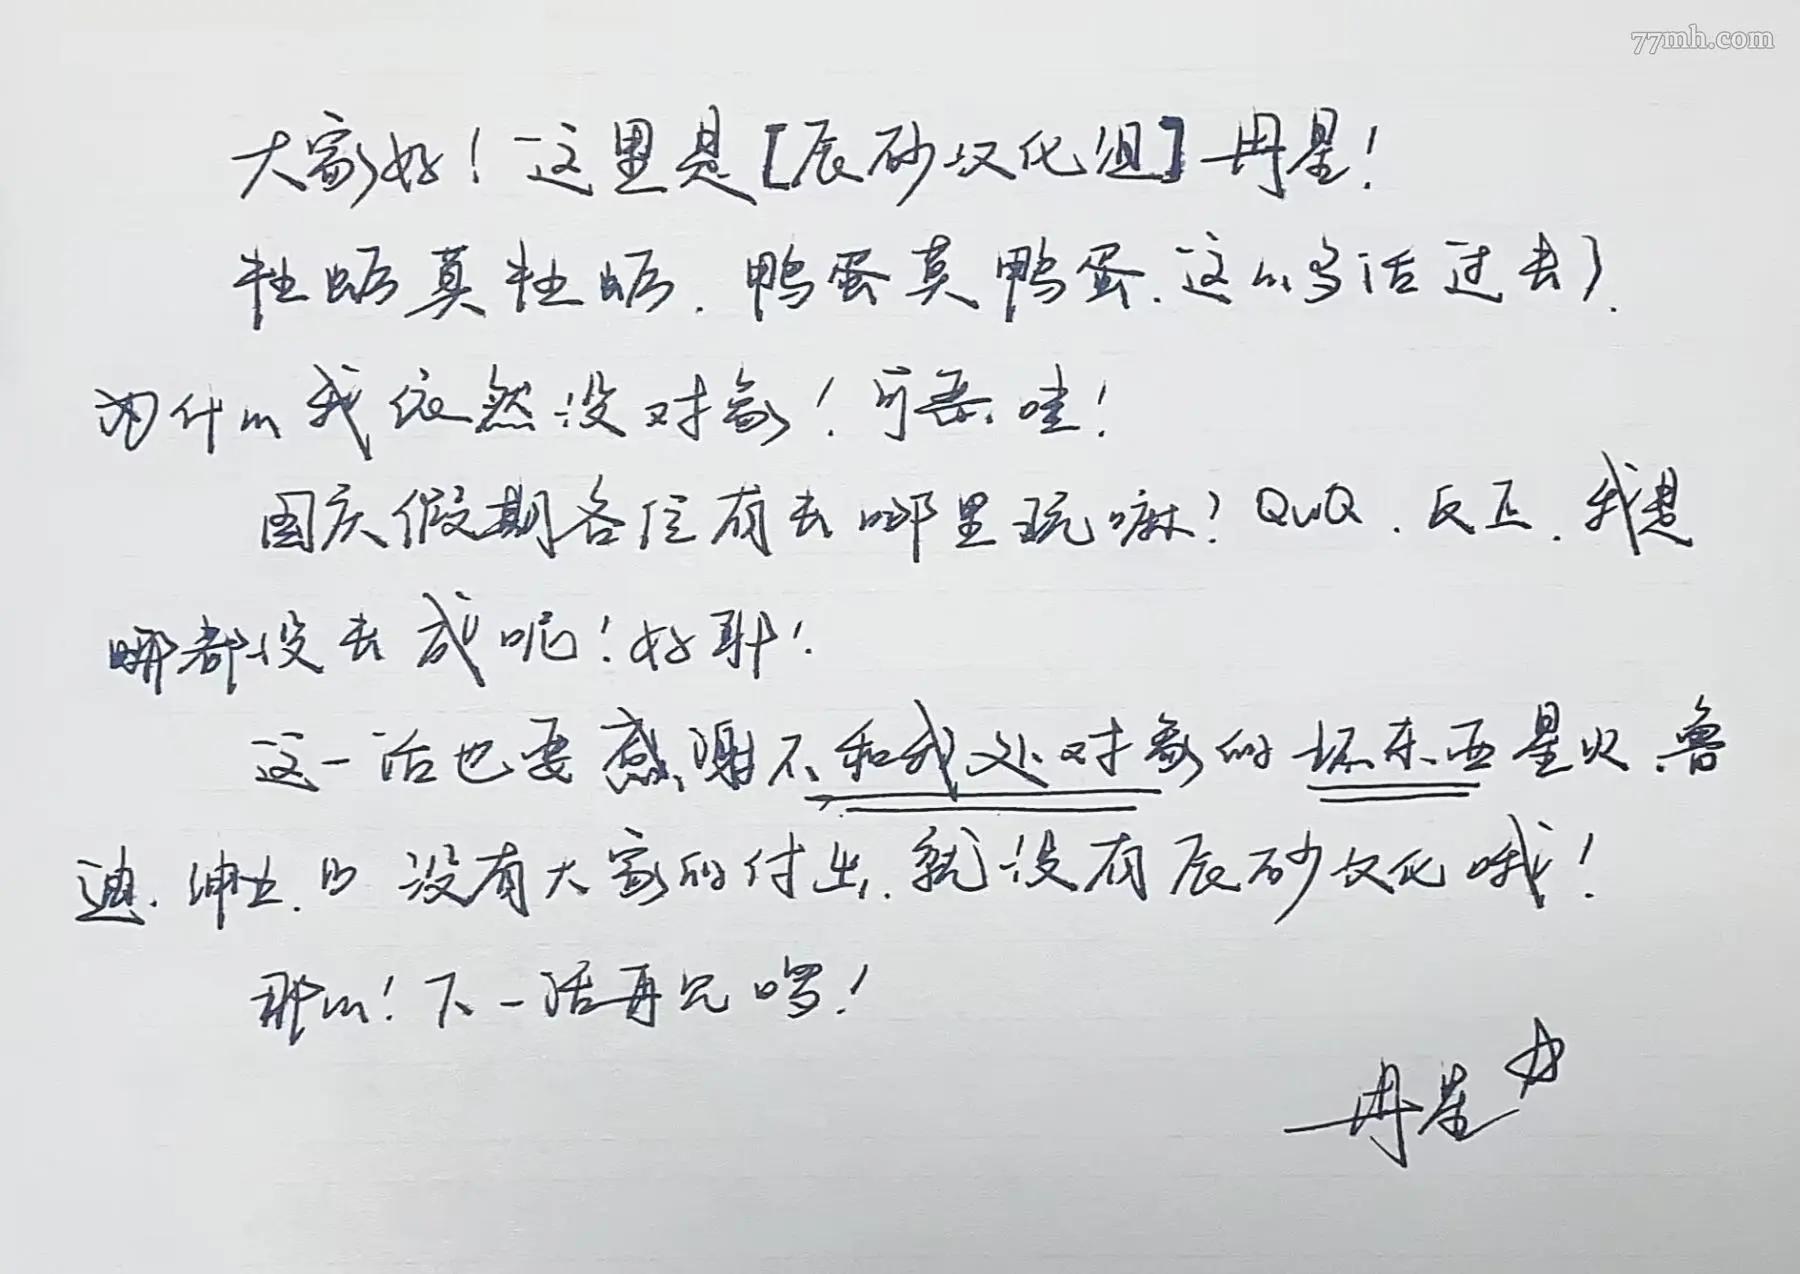 77mh.com
大家好！这里是[辰砂汉化组]冉星！
牡蛎莫牡蛎．鸭蛋莫鸭蛋．这么多话过去了．
为什么我依然没对象！可恶哇！
国庆假期各位有去哪里玩嘛？QwQ．反正．我是
哪都没去成呢！好耶！
这一话也要感谢不和我处对象的坏东西星火．鲁
迪．绅士． 没有大家的付出．就没有辰砂汉化哦！
那么！下一话再见啰！
冉星